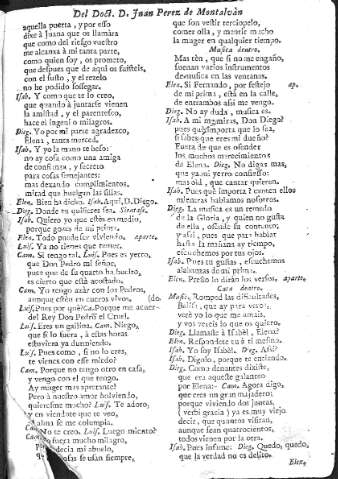 Del Doct. D. Juan Perez de Montalvàn
aquella puerta, y por esso
dixe à Juana que os llamàra
que como del riesgo vuestro
me alcanza à mi tanta parte,
como quien soy, os prometo,
que despues que de aqui os fuisteis,
con el susto, y el rezelo
no he podido sossegar.
Isab. Y como que te lo creo,
que quando à juntarse vienen
la amistad, y el parentesco,
hace el ingenio milagros.
Dieg. Yo por mi parte agradezco,
Elena, tanta merced.
Isab. Y yo la mano te beso:
no ay cosa como una amiga
de confianza, y secreto
para cosas semejantes:
mas dexando cumplimientos,
mirad que huelgan las sillas.
Elen. Bien ha dicho. Isab. Aqui, D. Diego.
Dieg. Donde tu quisieres sea. Sientase.
Isab. Quiero yo que estès en medio,
porque goces de mi prima.
Elen. Todo pudiesse viviendo. aparte.
Luis. Ya no tienes que temer.
Cam. Si tengo tal. Luis. Pues es yerro,
que Don Pedro mi señor,
pues que de su quarto ha buelto,
es cierto que està acostado.
Cam. Yo tengo azàr con los Pedros,
aunque estèn en cueros vivos. (do.
Luis. Pues por què? Ca. Porque me acuer-
del Rey Don Pedro el Cruel.
Luis. Eres un gallina. Cam. Niego,
que si lo fuera, à estas horas
estuviera ya durmiendo.
Luis. Pues como, si no lo eres,
te vienes con esse miedo?
Cam. Porque no tengo otro en casa,
y vengo con el que tengo.
Ay muger mas apurante?
Pero à nuestro amor bolviendo,
quieresme mucho? Luis. Te adoro,
y en viendote que te veo,
alma se me columpia.
No te creo. Luis. Luego miento?
fuera mucho milagro,
decia mi abuelo,
as usan siempre,
que son vestir terciopelo,
comer olla, y mentir mucho
la muger en qualquier tiempo.
Musica dentro.
Mas ten, que si no me engaño,
suenan varios instrumentos
de musica en las ventanas.
Elen. Si Fernando, por festejo ap.
de mi prima, està en la calle,
de entrambos assi me vengo.
Dieg. No ay duda, musica es.
Isab. A mi que miras, Don Diego?
pues què importa que lo sea,
si sabes que eres mi dueño?
Fuera de que es ofender
los muchos merecimientos
de Elena. Dieg. No digas mas,
que ya mi yerro confiesso:
mas oìd, que cantar quieren.
Isab. Pues què importa? canten ellos
mientras hablamos nosotros.
Dieg. La musica es un remedo
de la Gloria, y quien no gusta
de ella, ofende su contento;
y assi, pues que para hablar
hasta la mañana ay tiempo,
escuchemos por tus ojos.
Isab. Pues tu gustas, escuchemos
alabanzas de mi prima.
Elen. Presto lo diràn los versos. aparte.
Canta dentro.
Music. Romped las dificultades,
Belisa, que ay para veros,
verè yo lo que me amais,
y vos vereis lo que os quiero.
Dieg. Llamaste à Isabèl, Elena?
Elen. Respondete tu à ti mesmo.
Isab. Yo soy Isabèl. Dieg. Assi?
Isab. Digolo, porque te entiendo.
Dieg. Como denantes dixiste,
que era aqueste galanteo
por Elena: Cam. Agora digo,
que eres un gran majadero;
porque viviendo dos juntas,
(verbi gracia) ya es muy viejo
decir, que quantos visitan,
aunque sean quatrocientos,
todos vienen por la otra.
Isab. Pues infame: Dieg. Quedo, quedo,
que la verdad no es delito.
Elen.